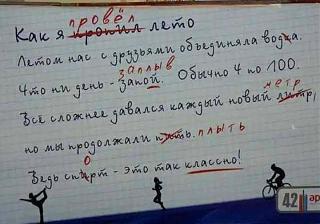 провёл
Как я пропил лето
Летом нас с друзьями объединяла водка.
заплыв
Что ни день - запой. Обычно 4 по 100.
метр
Всё сложнее давался каждый новый литр,
но мы продолжали пить. плыть
о
Ведь спирт - это так классно!
42